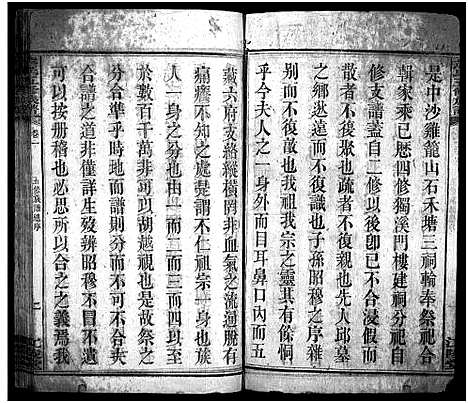 是中沙雞籠山石禾塘三祠輪奉祭祀合
輯家乘已歷四修獨溪門樓建祠分祀自
修支譜蓋自二修以後即已不合浸假而
散者不復聚也疏者不復親也先人邱墓
之鄉不復可以識也子孫昭穆之序雜
別而不復可以分也我宗之靈其有餘恫
乎今夫人之一身外而目耳鼻口內而五
藏六府支絡縱橫罔非血氣之流通脫有
痛癢不知之處是謂不仁祖宗一身也族
人一身之分也由一而二而三而四以至
於數百千萬非以胡越視也是故祭之
分合準乎時地而譜則分而不可不合夫
合譜之道非僅詳生歿辨昭穆不冒不遺
可以按册稽也必思所以合之之義焉我
卷一
五修族譜總序